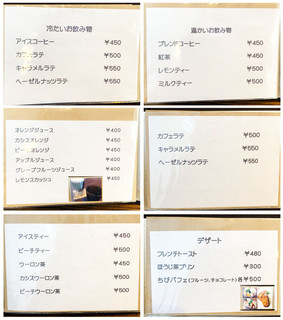 冷たいお飲み物
アイスコーヒー ￥450
カフェラテ ￥500
キャラメルラテ ￥550
ヘーゼルナッツラテ ￥550
温かいお飲み物
ブレンドコーヒー ￥450
紅茶 ￥450
レモンティー ￥500
ミルクティー ￥500
オレンジジュース ￥400
カシスオレンジ ￥450
オレンジ ￥450
アップルジュース ￥400
グレープフルーツジュース ￥400
レモンスカッシュ ￥450
カフェラテ ￥500
キャラメルラテ ￥550
ヘーゼルナッツラテ ￥550
アイスティー ￥450
ピーチティー ￥500
ウーロン茶 ￥450
カシスウーロン茶 ￥500
ピーチウーロン茶 ￥500
デザート
フレンチトースト ￥480
ほうじ茶プリン ￥300
ちびパフェ(フルーツ、チョコレート) 各￥500